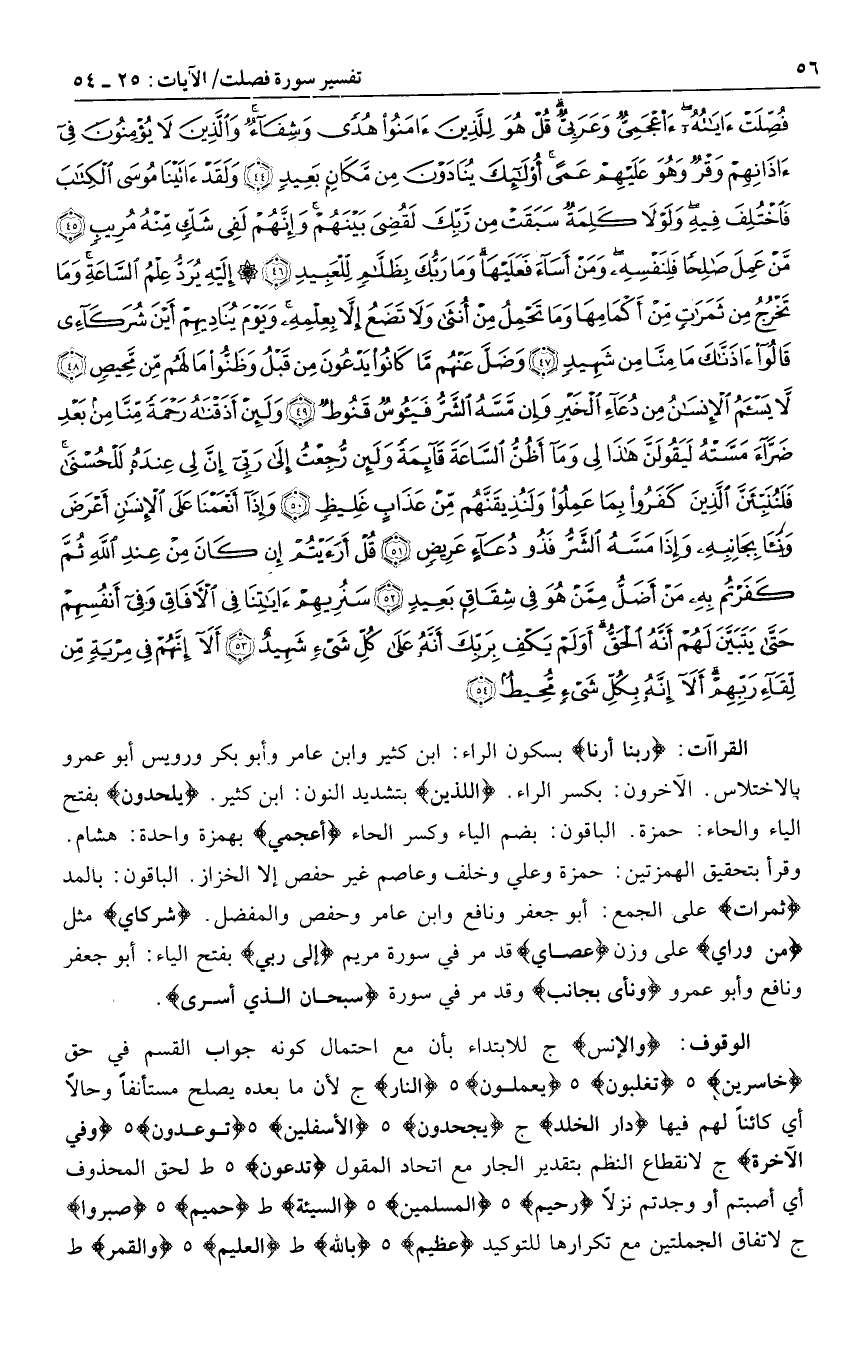 ٥٦
تفسير سورة فصلت/ الآيات: ٢٥ ـ ٥٤
فُصِّلَتْ ءَايَٰتُهُۥٓ ۖ ءَا۬عْجَمِىٌّ وَعَرَبِىٌّ ۗ قُلْ هُوَ لِلَّذِينَ ءَامَنُوا۟ هُدًى وَشِفَآءٌ ۖ وَٱلَّذِينَ لَا يُؤْمِنُونَ فِىٓ
ءَاذَانِهِمْ وَقْرٌ وَهُوَ عَلَيْهِمْ عَمًى ۚ أُو۟لَٰٓئِكَ يُنَادَوْنَ مِن مَّكَانٍۭ بَعِيدٍ ﴿٤٤﴾ وَلَقَدْ ءَاتَيْنَا مُوسَى ٱلْكِتَٰبَ
فَٱخْتُلِفَ فِيهِ ۗ وَلَوْلَا كَلِمَةٌ سَبَقَتْ مِن رَّبِّكَ لَقُضِىَ بَيْنَهُمْ ۚ وَإِنَّهُمْ لَفِى شَكٍّ مِّنْهُ مُرِيبٍ ﴿٤٥﴾
مَّنْ عَمِلَ صَٰلِحًا فَلِنَفْسِهِۦ ۖ وَمَنْ أَسَآءَ فَعَلَيْهَا ۗ وَمَا رَبُّكَ بِظَلَّٰمٍ لِّلْعَبِيدِ ﴿٤٦﴾ ۞ إِلَيْهِ يُرَدُّ عِلْمُ ٱلسَّاعَةِ ۚ وَمَا
تَخْرُجُ مِن ثَمَرَٰتٍ مِّنْ أَكْمَامِهَا وَمَا تَحْمِلُ مِنْ أُنثَىٰ وَلَا تَضَعُ إِلَّا بِعِلْمِهِۦ ۚ وَيَوْمَ يُنَادِيهِمْ أَيْنَ شُرَكَآءِى
قَالُوٓا۟ ءَاذَنَّٰكَ مَا مِنَّا مِن شَهِيدٍ ﴿٤٧﴾ وَضَلَّ عَنْهُم مَّا كَانُوا۟ يَدْعُونَ مِن قَبْلُ ۖ وَظَنُّوا۟ مَا لَهُم مِّن مَّحِيصٍ ﴿٤٨﴾
لَّا يَسْـَٔمُ ٱلْإِنسَٰنُ مِن دُعَآءِ ٱلْخَيْرِ وَإِن مَّسَّهُ ٱلشَّرُّ فَيَـُٔوسٌ قَنُوطٌ ﴿٤٩﴾ وَلَئِنْ أَذَقْنَٰهُ رَحْمَةً مِّنَّا مِنۢ بَعْدِ
ضَرَّآءَ مَسَّتْهُ لَيَقُولَنَّ هَٰذَا لِى وَمَآ أَظُنُّ ٱلسَّاعَةَ قَآئِمَةً وَلَئِن رُّجِعْتُ إِلَىٰ رَبِّىٓ إِنَّ لِى عِندَهُۥ لَلْحُسْنَىٰ ۚ
فَلَنُنَبِّئَنَّ ٱلَّذِينَ كَفَرُوا۟ بِمَا عَمِلُوا۟ وَلَنُذِيقَنَّهُم مِّنْ عَذَابٍ غَلِيظٍ ﴿٥٠﴾ وَإِذَآ أَنْعَمْنَا عَلَى ٱلْإِنسَٰنِ أَعْرَضَ
وَنَـَٔا بِجَانِبِهِۦ وَإِذَا مَسَّهُ ٱلشَّرُّ فَذُو دُعَآءٍ عَرِيضٍ ﴿٥١﴾ قُلْ أَرَءَيْتُمْ إِن كَانَ مِنْ عِندِ ٱللَّهِ ثُمَّ
كَفَرْتُم بِهِۦ مَنْ أَضَلُّ مِمَّنْ هُوَ فِى شِقَاقٍۭ بَعِيدٍ ﴿٥٢﴾ سَنُرِيهِمْ ءَايَٰتِنَا فِى ٱلْءَافَاقِ وَفِىٓ أَنفُسِهِمْ
حَتَّىٰ يَتَبَيَّنَ لَهُمْ أَنَّهُ ٱلْحَقُّ ۗ أَوَلَمْ يَكْفِ بِرَبِّكَ أَنَّهُۥ عَلَىٰ كُلِّ شَىْءٍ شَهِيدٌ ﴿٥٣﴾ أَلَآ إِنَّهُمْ فِى مِرْيَةٍ مِّن
لِّقَآءِ رَبِّهِمْ ۗ أَلَآ إِنَّهُۥ بِكُلِّ شَىْءٍ مُّحِيطٌۢ ﴿٥٤﴾
القراآت: ﴿ربنا أرنا﴾ بسكون الراء: ابن كثير وابن عامر وأبو بكر ورويس أبو عمرو
بالاختلاس. الآخرون: بكسر الراء. ﴿اللذين﴾ بتشديد النون: ابن كثير. ﴿يلحدون﴾ بفتح
الياء والحاء: حمزة. الباقون: بضم الياء وكسر الحاء ﴿أعجمي﴾ بهمزة واحدة: هشام.
وقرأ بتحقيق الهمزتين: حمزة وعلي وخلف وعاصم غير حفص إلا الخزاز. الباقون: بالمد
﴿ثمرات﴾ على الجمع: أبو جعفر ونافع وابن عامر وحفص والمفضل. ﴿شركاي﴾ مثل
﴿من وراي﴾ على وزن ﴿عصاي﴾ قد مر في سورة مريم ﴿إلى ربي﴾ بفتح الياء: أبو جعفر
ونافع وأبو عمرو ﴿ونأى بجانب﴾ وقد مر في سورة ﴿سبحان الذي أسرى﴾.
الوقوف: ﴿والإنس﴾ ج للابتداء بأن مع احتمال كونه جواب القسم في حق
﴿خاسرين﴾ ٥ ﴿تغلبون﴾ ٥ ﴿يعملون﴾ ٥ ﴿النار﴾ ج لأن ما بعده يصلح مستأنفاً وحالاً
أي كائناً لهم فيها ﴿دار الخلد﴾ ج ﴿يجحدون﴾ ٥ ﴿الأسفلين﴾ ٥ ﴿توعدون﴾ ٥ ﴿وفي
الآخرة﴾ ج لانقطاع النظم بتقدير الجار مع اتحاد المقول ﴿تدعون﴾ ٥ ط لحق المحذوف
أي أصبتم أو وجدتم نزلاً ﴿رحيم﴾ ٥ ﴿المسلمين﴾ ٥ ﴿السيئة﴾ ط ﴿حميم﴾ ٥ ﴿صبروا﴾
ج لاتفاق الجملتين مع تكرارها للتوكيد ﴿عظيم﴾ ٥ ﴿بالله﴾ ط ﴿العليم﴾ ٥ ﴿والقمر﴾ ط